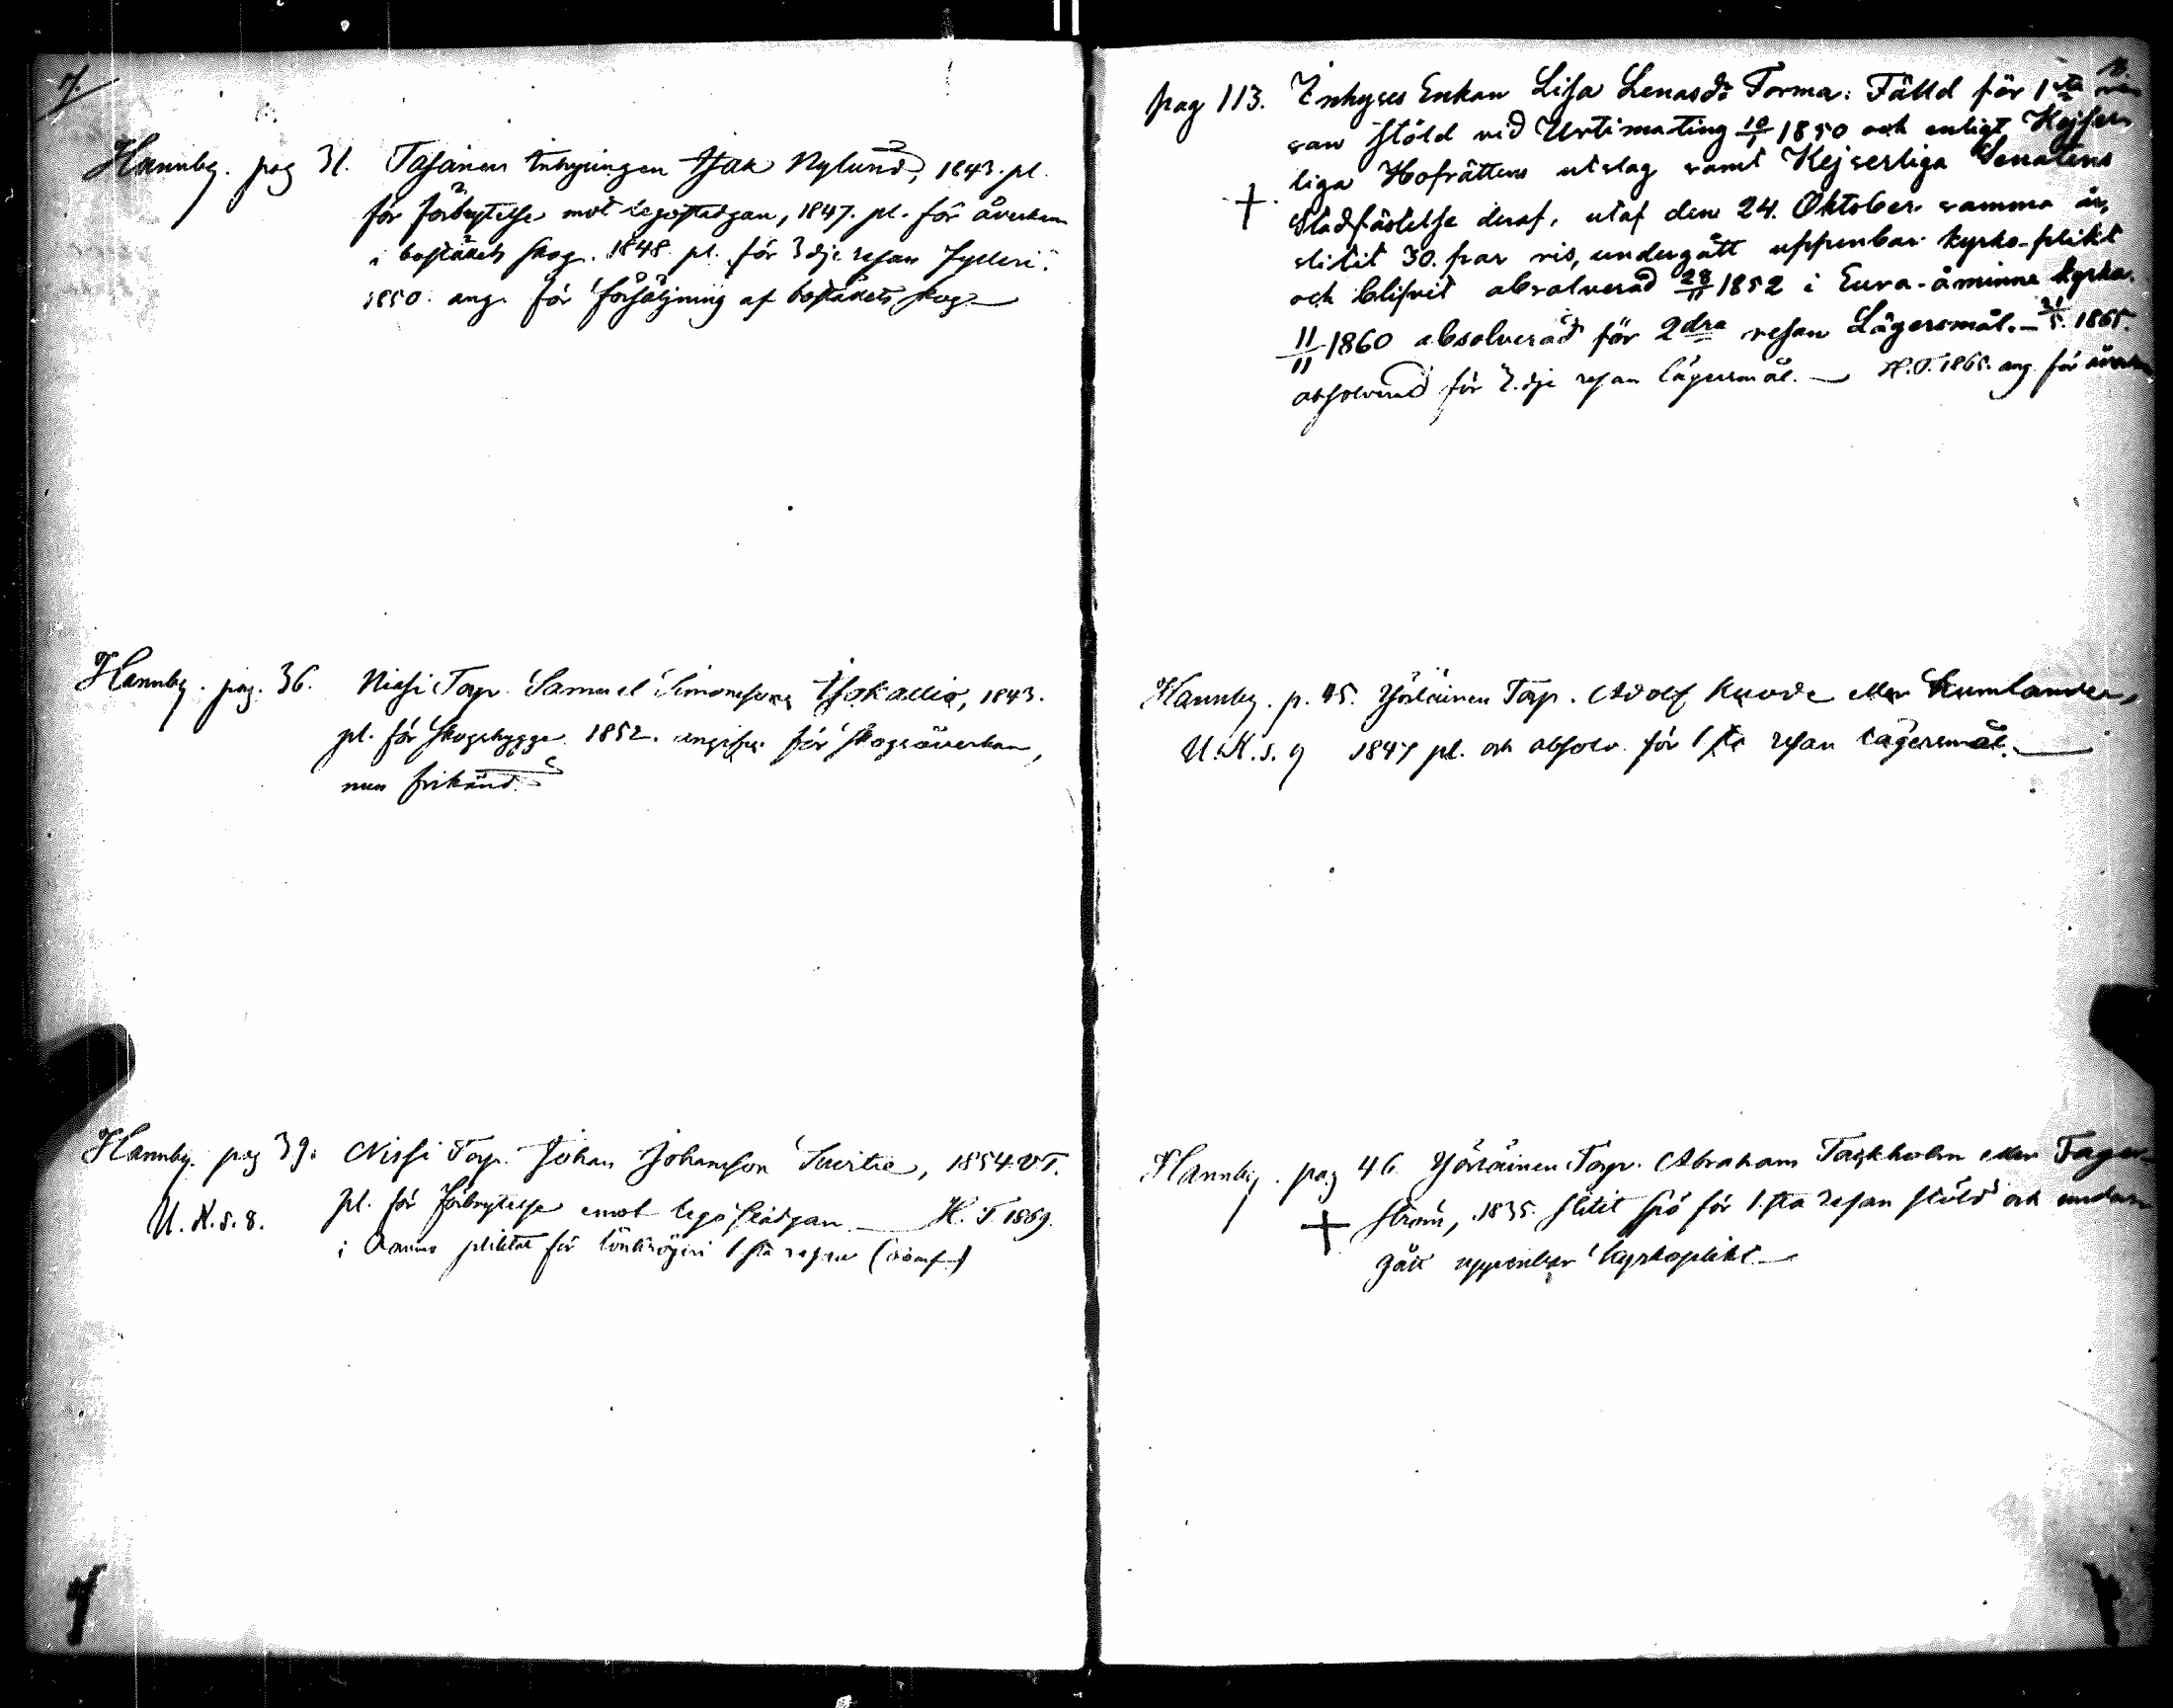 7.
Hannby. pag 31. Tasainen Inhysingen Isak Nylund, 1843. pl.
för förbrytelse mot legostadgan, 1847. pl. för åverkan
i boställets skog. 1848. pl. för 3dje resan fylleri.
1850. ang. för försäljning af boställets skog.
Hannby. pag. 36. Torp. Samuel Simonsson Isokallio, 1843.
pl. för skogshygge. 1852. angifven för skogsåverkan,
men frikänd.
Hannby. pag 39. Nissi Torp. Johan Johansson, 1854. V.T.
U.K.s.8. pl. för förbrytelse emot legostadgan H.T. 1869.
i pliktat för lönkrögeri 1sta resan
8.
pag 113. Inhyses Enkan Lisa Lenasdr Torma: Fälld för 1sta re-
san stöld vid Urtima ting 1850 och enligt Kejser-
liga Hofrättens utslag samt Kejserliga Senatens
+ Stadfästelse deraf, utaf den 24. Oktober samma år,
slitit 30. par ris, undergått uppenbar kyrko-plikt
och blifvit absolverad 28/11 1852 i Eura-åminne kyrka.
11/11 1860 absolverad för 2dra resan Lägersmål. 1865.
absolverad för 3.dje resan lägersmål. H.T. 1865. ang. för åverkan
Hannby. p. 45. Yöläinen Torp. Adolf eller Kumlander,
U.K.s.9 1847 pl. och absolv. för 1sta resan lägersmål.
Hannby. pag 46. Yöläinen Torp. Abraham Taskholm eller Fager-
+ ström, 1835. slitit spö för 1.sta resan stöld och under-
gått uppenbar kyrkoplikt.